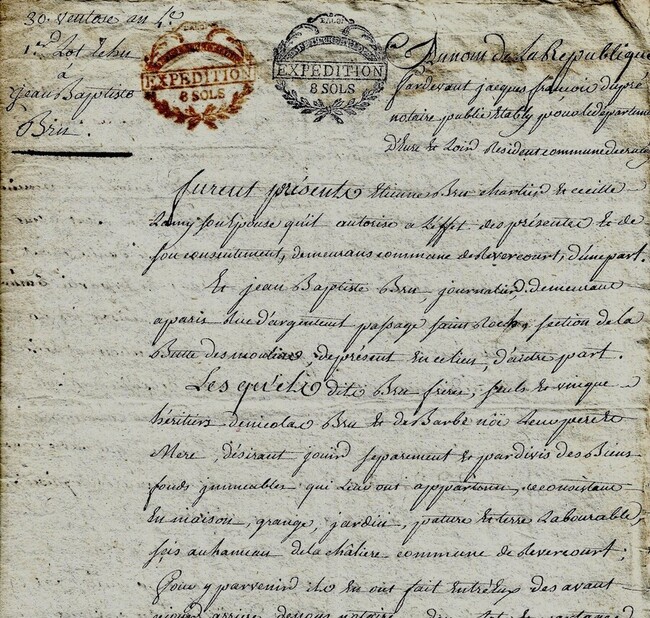 30. Ventose an 4e
1er Lot Echu
a
Jean Baptiste
Bru.
EXPEDITION
8 SOLS
EXPEDITION
8 SOLS
Au nom de La Republique
Pardevant jacques françois dupré
notaire public Etably pour le departem
D'Eure Et Loir Resident commune de
furent présents Etienne Bru chartier Et cecille
Lamy son Epouse qu'il autorise a L'effet des présentes Et de
son consentement, demeurans commune de Revercourt, d'une part.
Et jean Baptiste Bru, journalier, demeurant
a paris Rue d'argenteuil passage saint Roch, section de la
Butte des moulins, de présent En ce lieu, d'autre part.
Lesquels dits Bru freres, seuls Et unique
héritiers de nicolas Bru Et de Barbe noë Leurs pere Et
Mere, désirant jouir separement Et pardivis des Biens
fonds immeubles qui Leur ont appartenu, consistans
En maison, grange, jardin, pature Et terre Labourable,
sis au hameau de la châliere commune de Revercourt;
Pour y parvenir ils En ont fait Entr'Eux des avant
notaire, des Lot Et partages